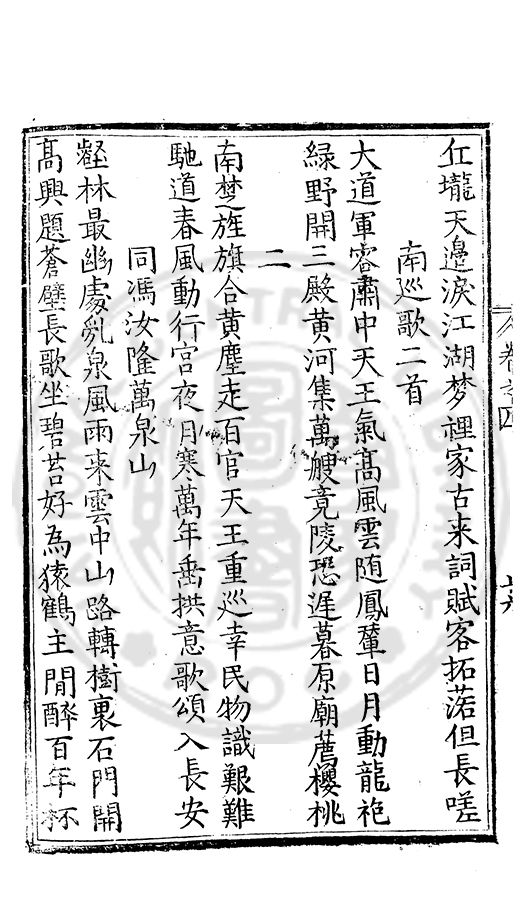 仜壠天邉淚江湖梦裡家古来詞賦客拓落但長嗟
南巡歌二首
大道軍容肅中天王氣髙風雲随鳳輦日月動龍袍
緑野開三殿黄河集萬艘竟陵恐遲暮原廟薦櫻桃
二
南楚旌旗合黄塵走百官天王重巡幸民物識艱難
馳道春風動行宫夜月寒萬年垂拱意歌頌入長安
同馮汝隆萬泉山
壑林最幽處亂泉風雨来雲中山路轉樹裏石門開
髙興題蒼壁長歌坐碧苔好為猿鶴主閒醉百年杯